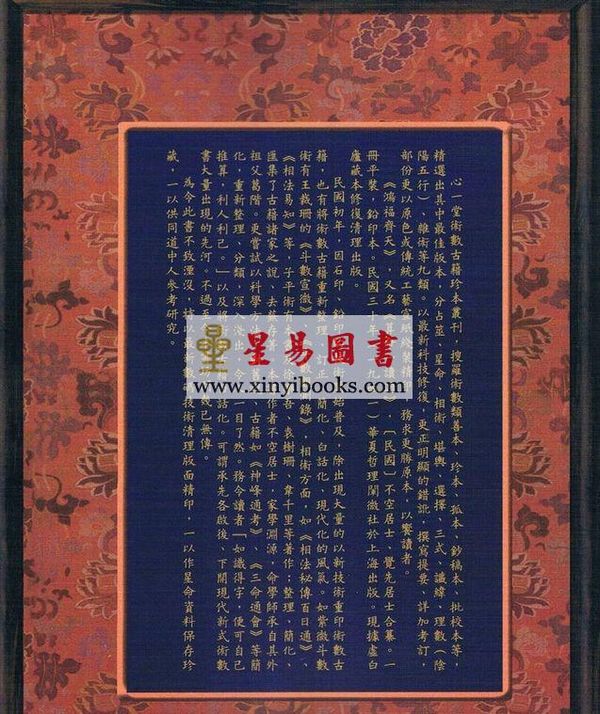 心一堂術數古籍珍本叢刊，搜羅術數類善本、珍本、孤本、鈔稿本、批校本等，
精選出其中最佳版本，分占筮、星命、相術、堪輿、選擇、三式、讖緯、理數（陰
陽五行）、雜術等九類。以最新科技修復，更正明顯的錯訛，撰寫提要、詳加考訂，
部份更以原色或傳統工藝宣紙線裝精印，務求更勝原本，以饗讀者。
《鴻福齊天》，又名，［民國］不空居士、覺先居士合纂。一
冊平裝，鉛印本。民國三十年華夏哲理闡微社於上海出版。現據虛白
廬藏本修復清理出版。
民國初年，因石印、鉛印術始普及，除出現大量的以新技術重印術數古
籍，也有將術數古籍重新整理簡化、白話化、現代化的風氣。如紫微斗數
術有王裁珊的《斗數宣微》錄》，相術方面，如《相法秘傳百日通》、
《相法易知》等，子平術有吾、袁樹珊、韋千里等著作；整理、簡化、
匯集了古籍諸家之說、去蕪存作者不空居士，家學淵源，命學師承自其外
祖父葛階。更嘗試以科學方、古籍如《神峰通考》、《三命通會》等簡
化，重新整理、分類，深入淺一目了然。務令讀者「如識得字，便可自己
推算，利人利己。」以及將術話化。可謂承先各啟後、下開現代新式術數
書大量出現的先河。不過至幾已無傳。
為令此書不致湮沒，技術清理版面精印，一以作星命資料保存珍
藏，一以供同道中人參考研究。
星易圖書
www.xinyibooks.com